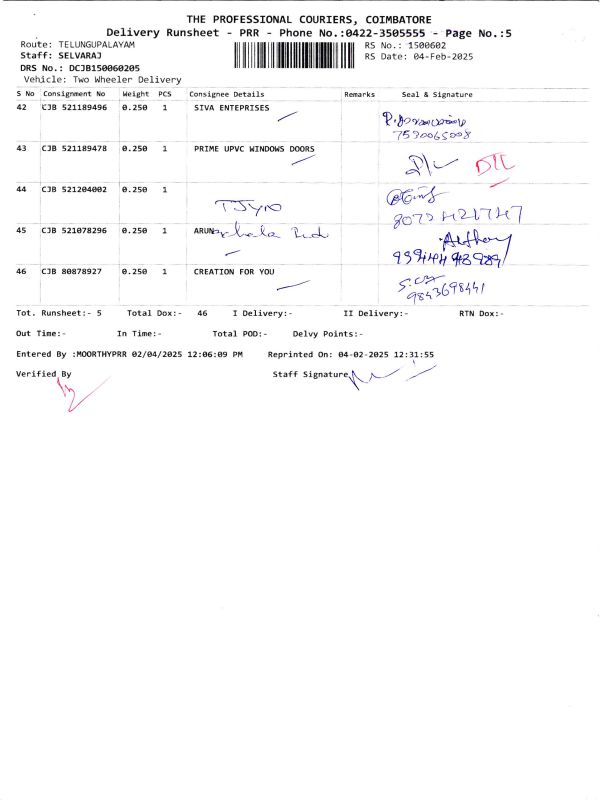 THE PROFESSIONAL COURIERS, COIMBATORE
Delivery Runsheet - PRR - Phone No.:0422-3505555 - Page No.:5
Route: TELUNGUPALAYAM RS No.: 1500602
Staff: SELVARAJ RS Date: 04-Feb-2025
DRS No.: DCJB150060205
Vehicle: Two Wheeler Delivery
S No Consignment No Weight PCS Consignee Details Remarks Seal & Signature
42 CJB 521189496 0.250 1 SIVA ENTEPRISES
7530065008
43 CJB 521189478 0.250 1 PRIME UPVC WINDOWS DOORS
44 CJB 521204002 0.250 1
45 CJB 521078296 0.250 1 ARUN
46 CJB 80878927 0.250 1 CREATION FOR YOU
9843698441
Tot. Runsheet:- 5 Total Dox:- 46 I Delivery:- II Delivery:- RTN Dox:-
Out Time:- In Time:- Total POD:- Delvy Points:-
Entered By :MOORTHYPRR 02/04/2025 12:06:09 PM Reprinted On: 04-02-2025 12:31:55
Verified By Staff Signature